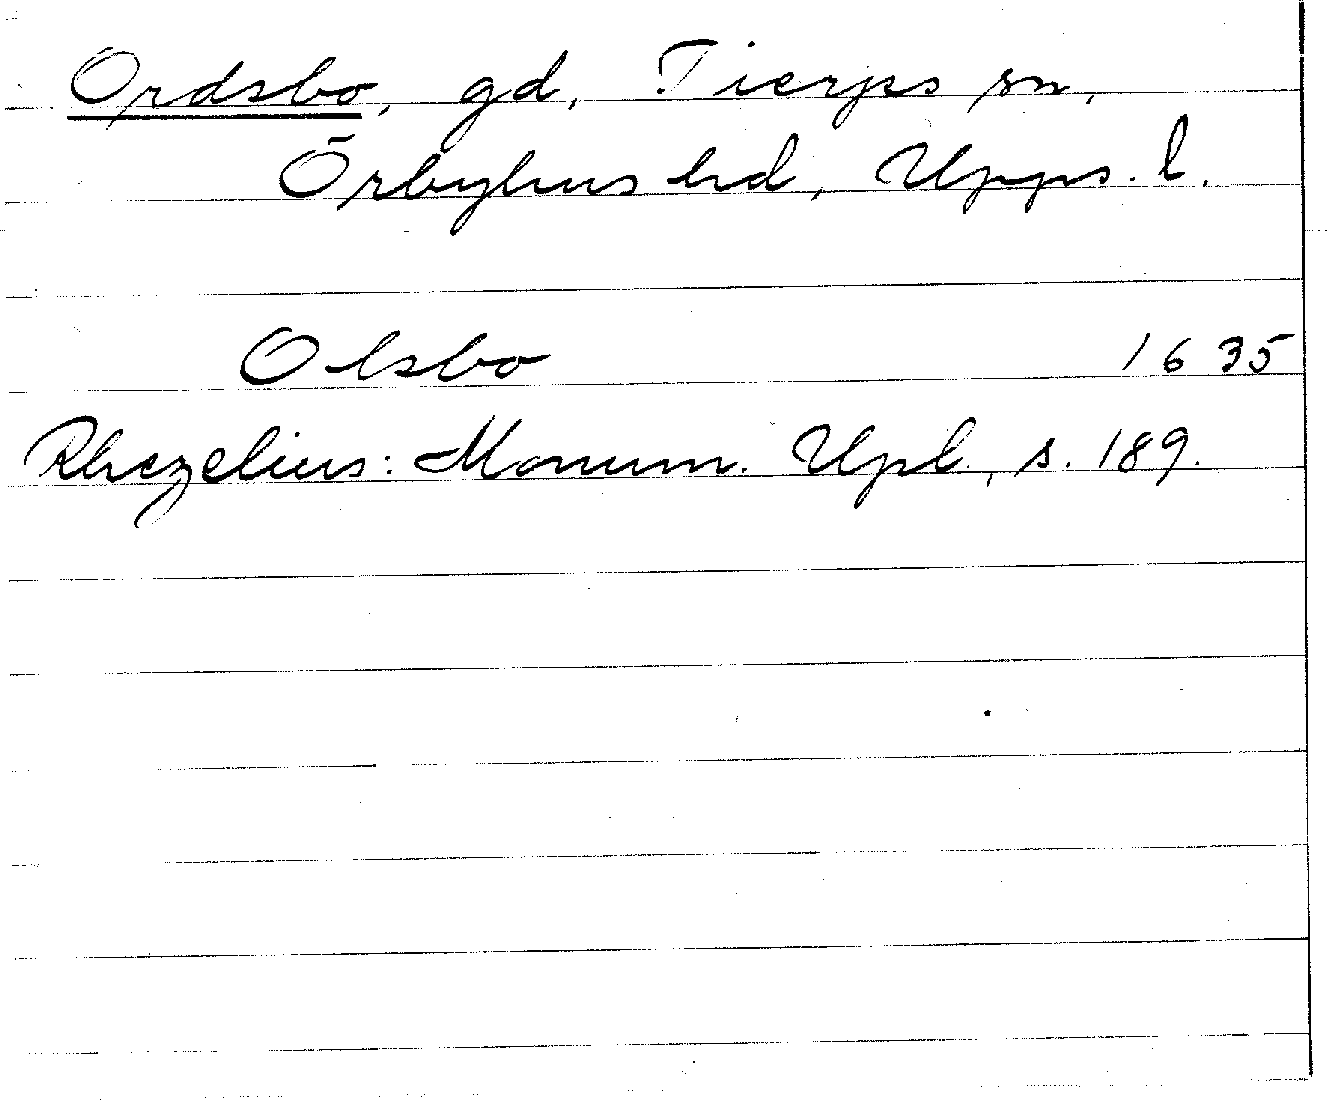 Ordsbo, gd, Tierps sn,
Örbyhus hd, Upps. l.
Olsbo 1635
Rhezelius: Monum. Upl., s. 189.